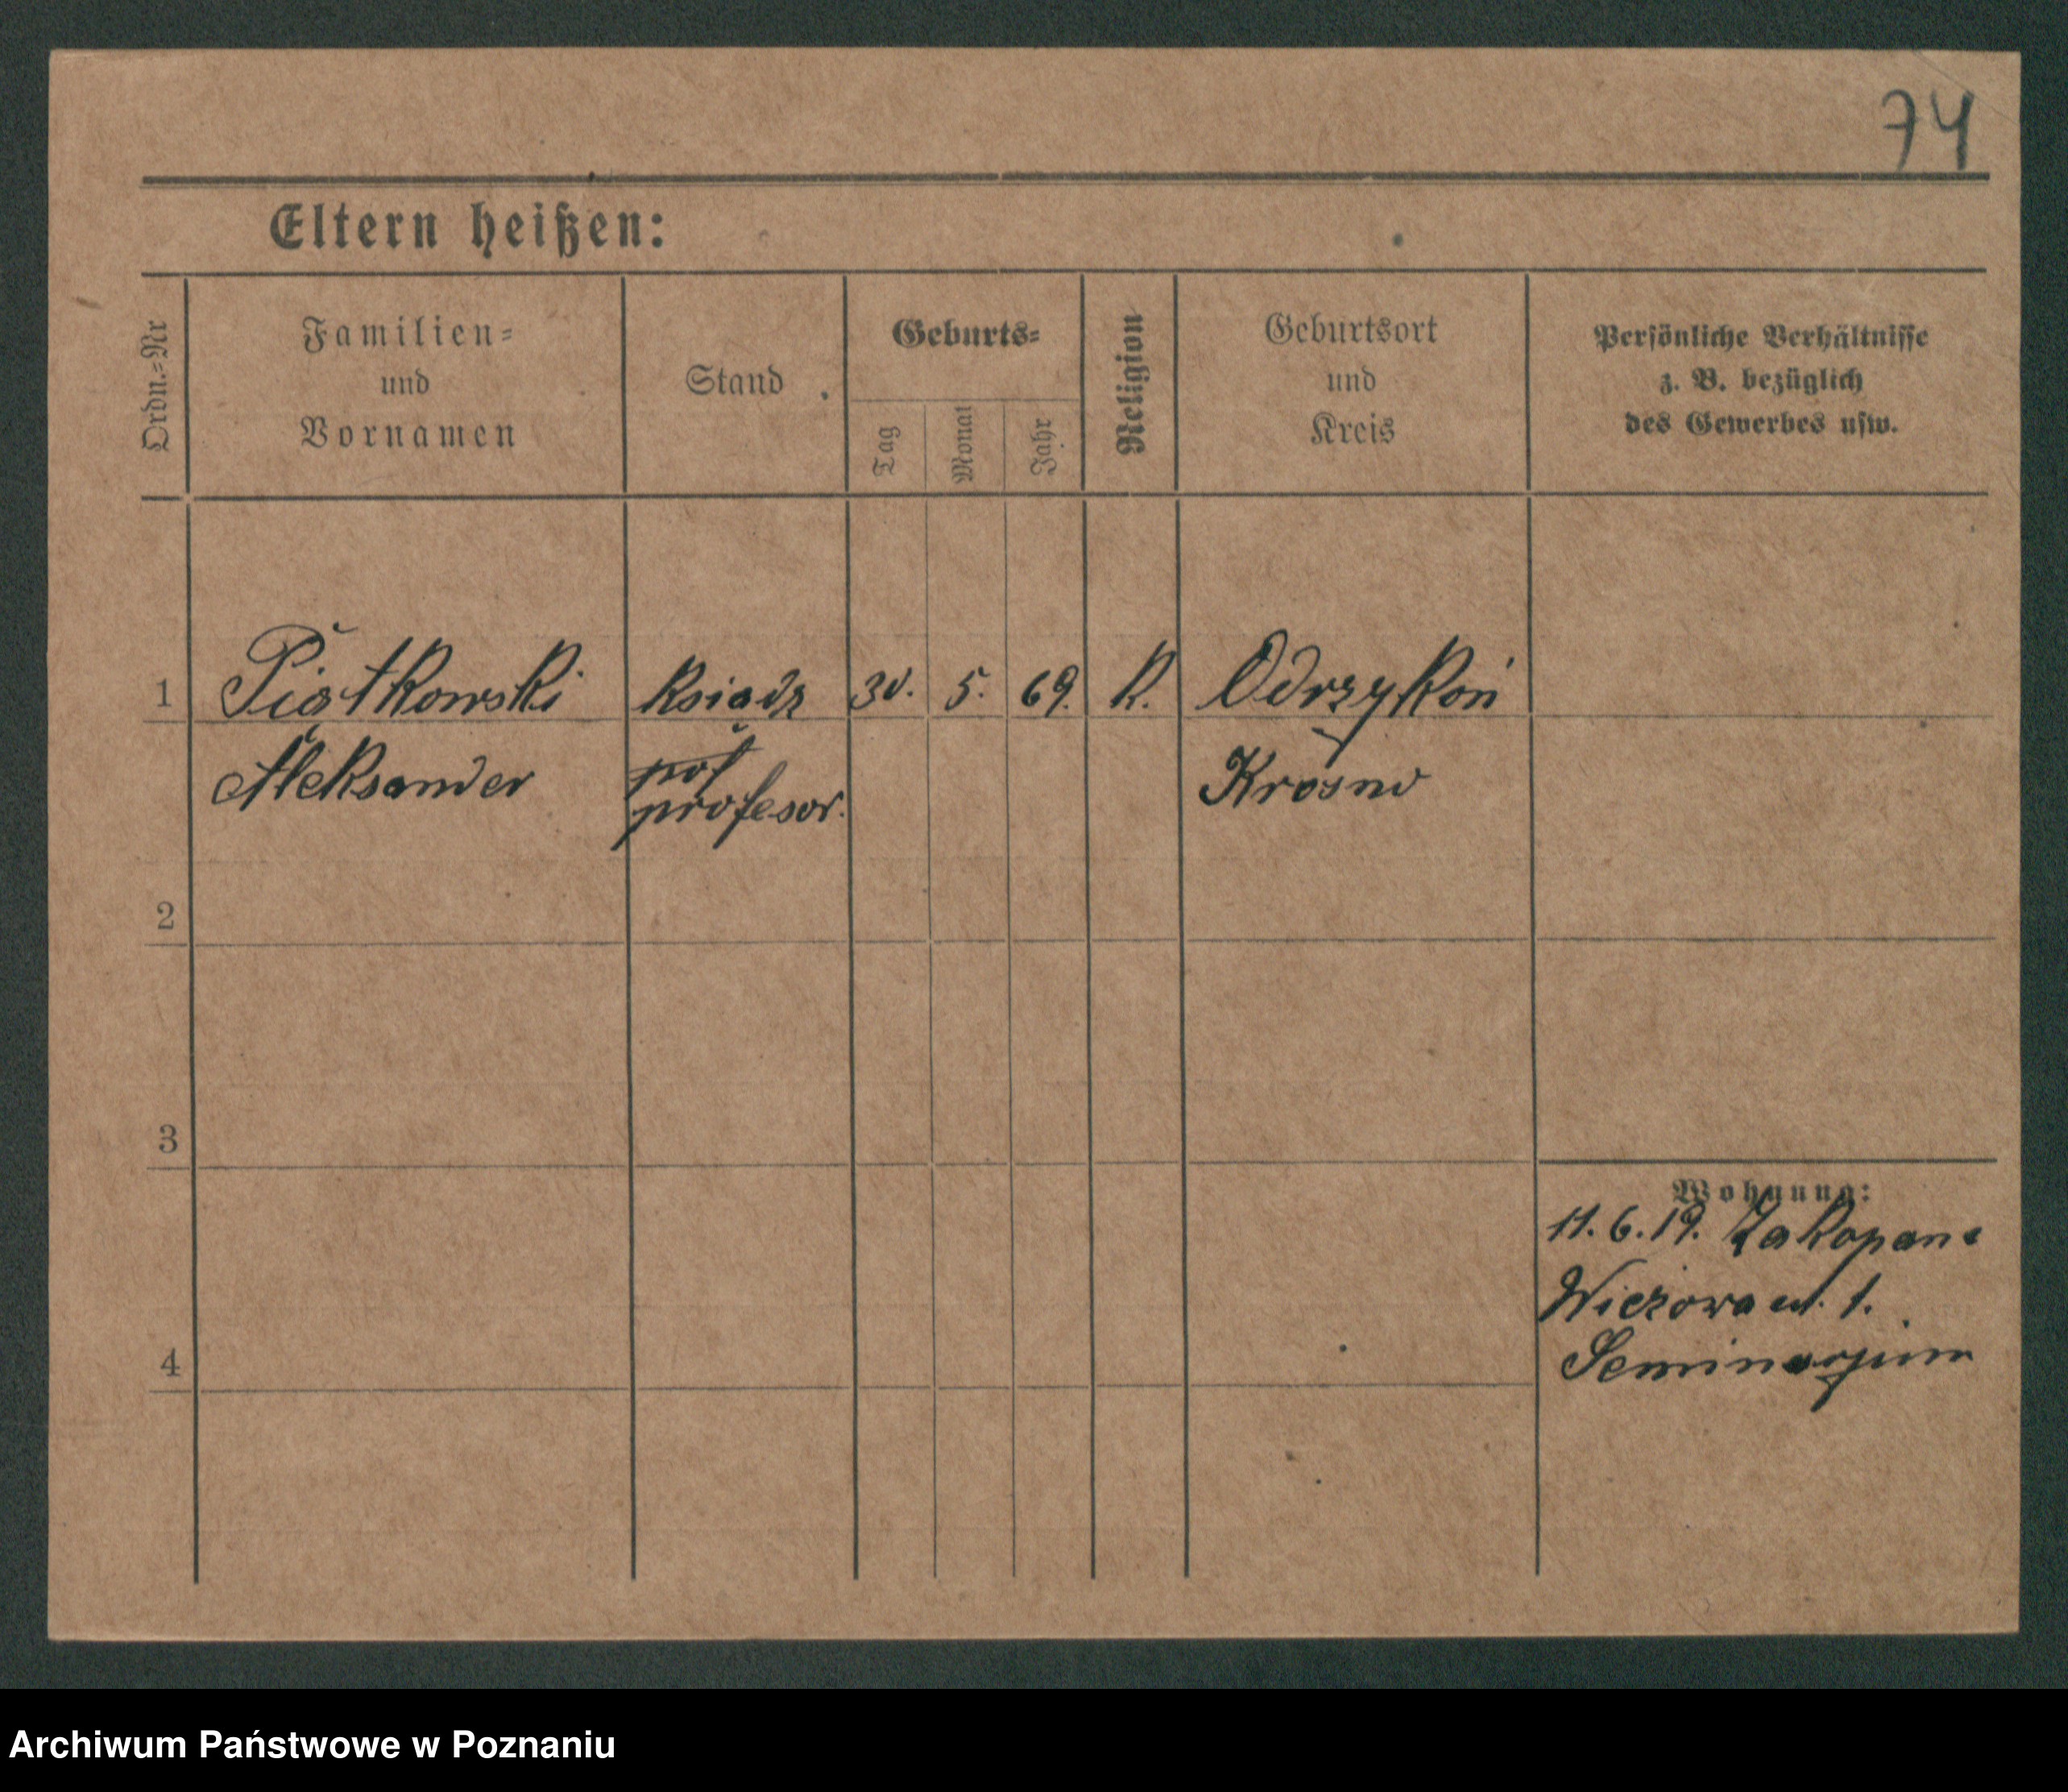 74
Eltern heißen:
Ordn.-Nr
Familien-
und
Vornamen
Stand
Geburts-
Tag
Monat
Jahr
Religion
Geburtsort
und
Kreis
Persönliche Verhältnisse
z. B. bezüglich
des Gewerbes usw.
1 Piątkowski Ksiądz 30. 5. 69. K. Odrzykoń
Aleksander prof Krosno
profesor.
2
3
Wohnung:
11.6.19. Zakopane
Wieżowa ul. 1.
4 Seminarjum
Archiwum Państwowe w Poznaniu